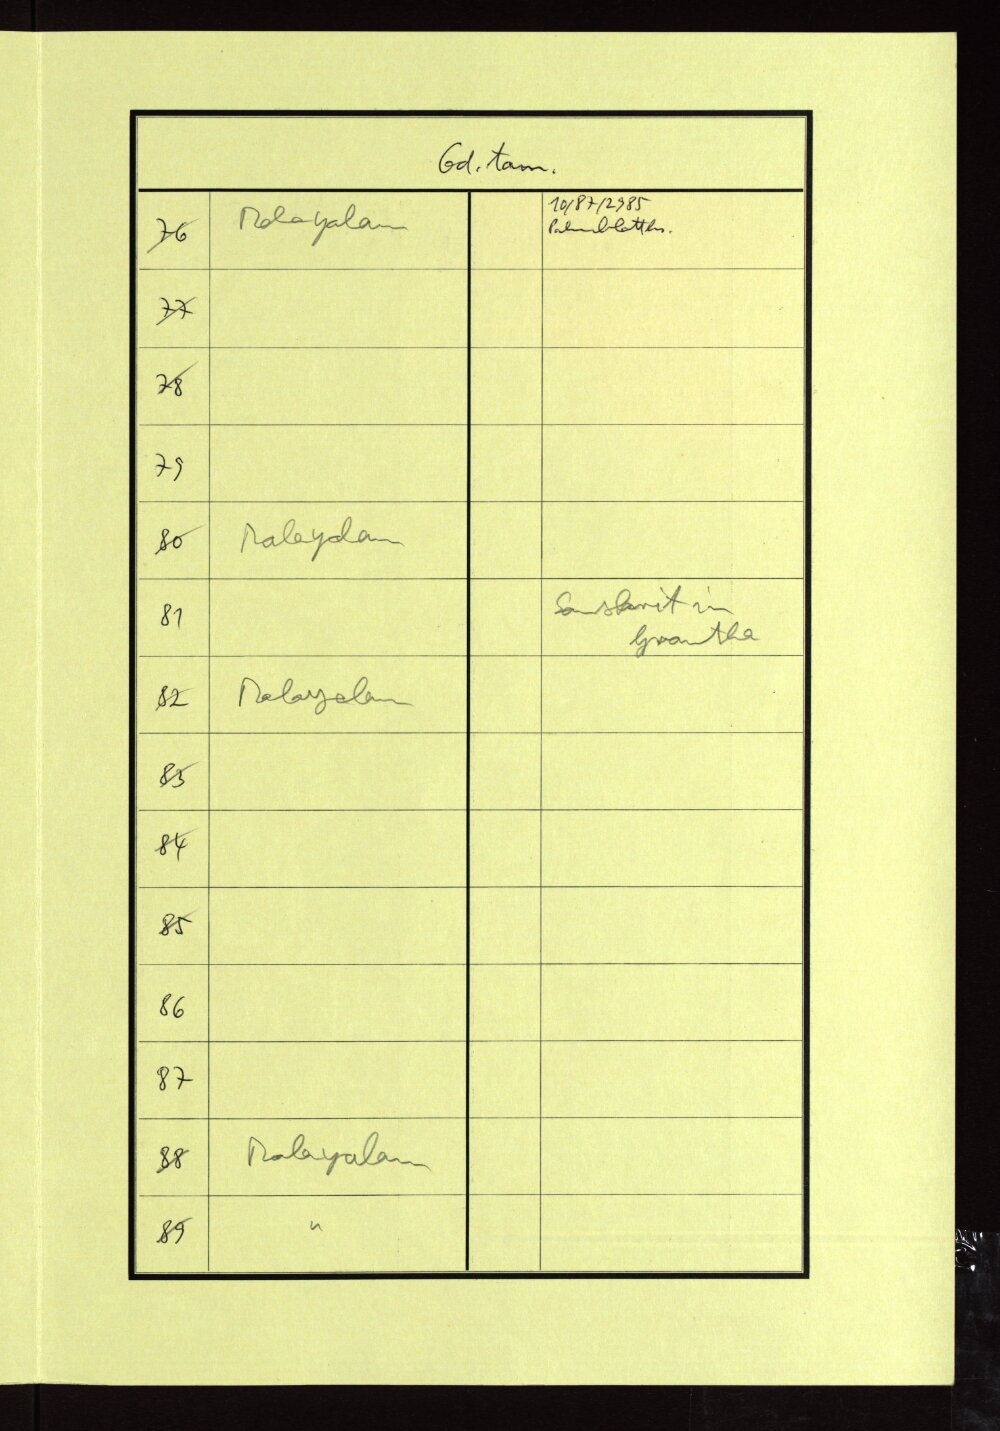 Cd. tam.
76 Malayalam 10/87/2985
Palmblatths.
77
78
79
80 Malayalam
81 Sanskrit in
Grantha
82 Malayalam
83
84
85
86
87
88 Malayalam
89 "